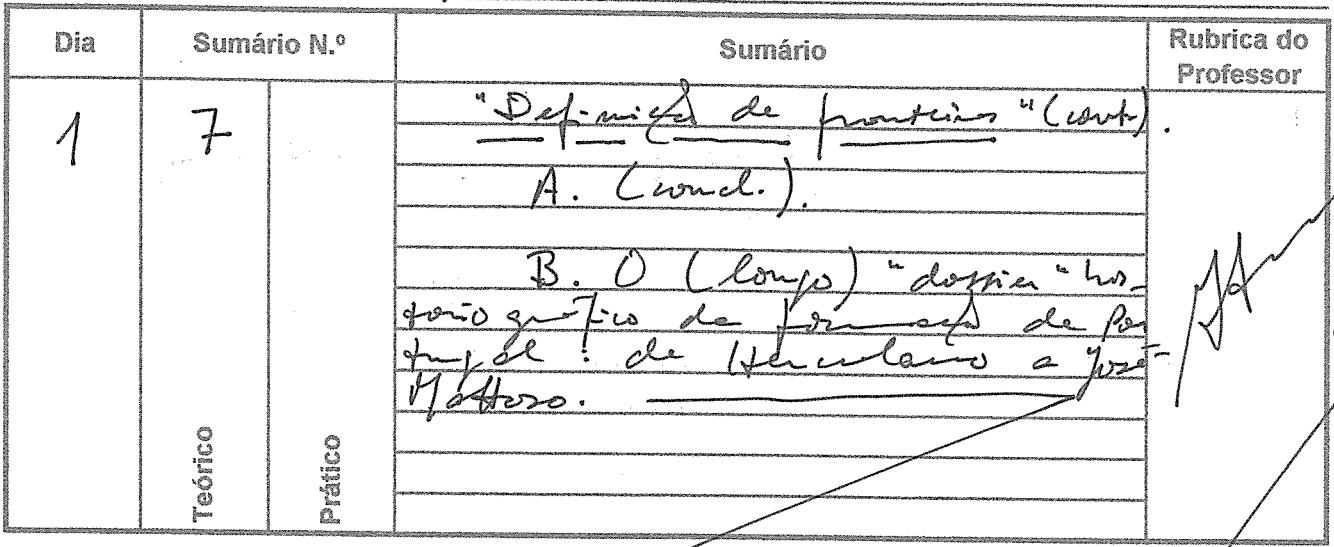 Dia Sumário N.º Sumário Rubrica do Professor
1 7 "Definição de fronteiras" (cont).
A. (concl.).
B. O (longo) "dossier" his-
toriográfico da formação de Por-
tugal: de Herculano a José
Mattoso.
Teórico Prático